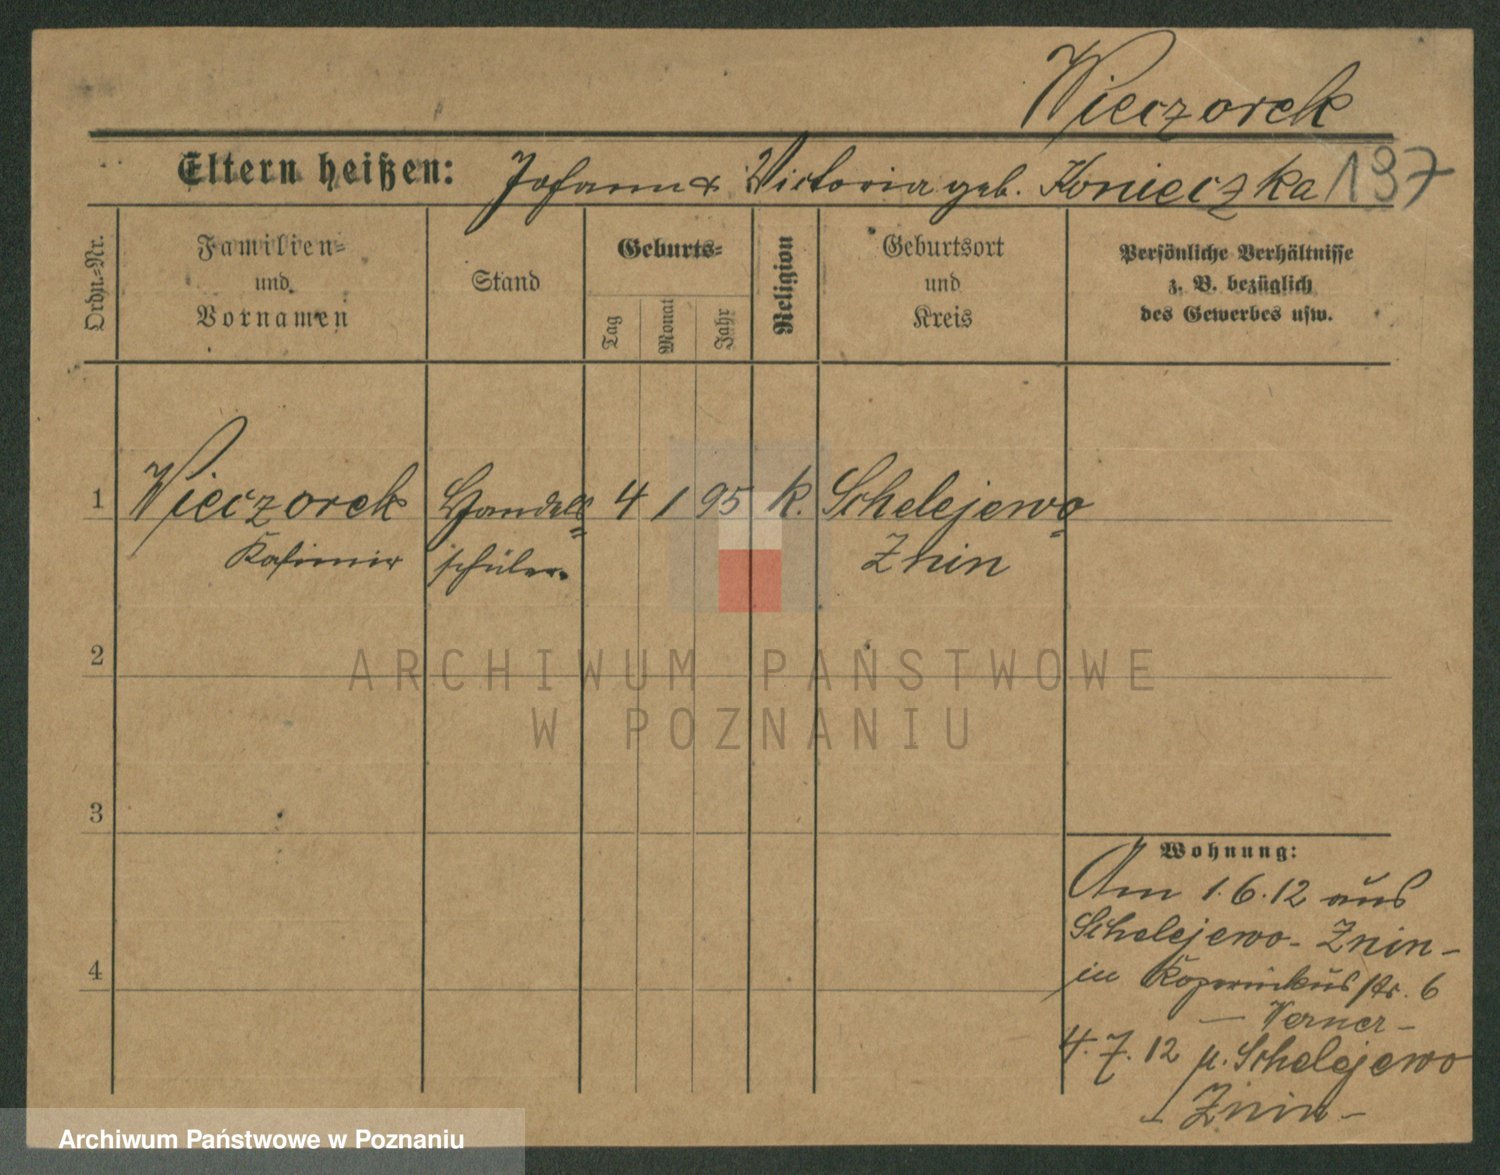 Wieczorek
Eltern heißen: Johann & Victoria geb. Konieczka 137
Ordn.-Nr.
Familien-
und
Vornamen
Stand
Geburts-
Tag
Monat
Jahr
Religion
Geburtsort
und
Kreis
Persönliche Verhältnisse
z. B. bezüglich
des Gewerbes usw.
1 Wieczorek Handels= 4 1 95 k. Schelejewo
Kasimir schüler. Znin
2
3
4
Wohnung:
Am 1.6.12 aus
Schelejewo - Znin -
in Kopernikusstr. 6
- Verner -
4.7.12 n. Schelejewo
- Znin -
ARCHIWUM PAŃSTWOWE
W POZNANIU
Archiwum Państwowe w Poznaniu